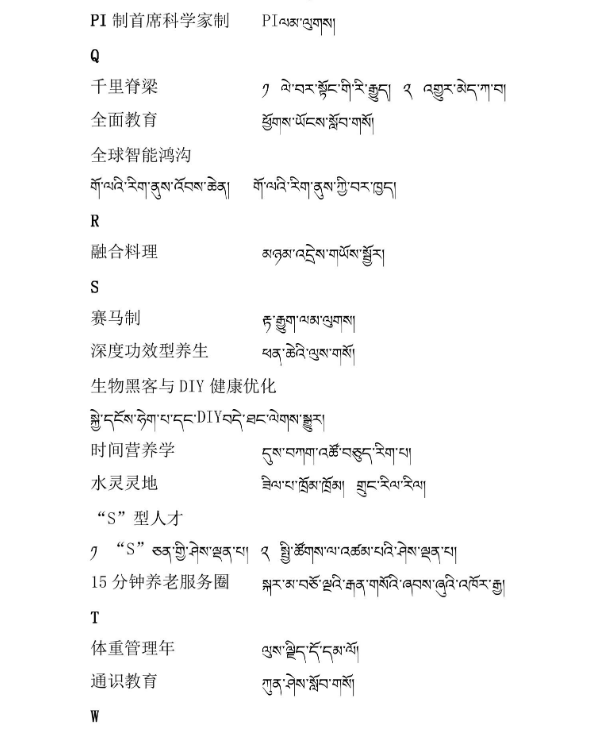 PI 制首席科学家制 PIལམ་ལུགས།
Q
千里脊梁 ༡ ལེ་བར་སྟོང་གི་རི་རྒྱུད། ༢ འགྱུར་མེད་ཀ་བ།
全面教育 ཕྱོགས་ཡོངས་སློབ་གསོ།
全球智能鸿沟
གོ་ལའི་རིག་ནུས་འོབས་ཆེན། གོ་ལའི་རིག་ནུས་ཀྱི་བར་ཁྱད།
R
融合料理 མཉམ་འདྲེས་གཡོས་སྦྱོར།
S
赛马制 རྟ་རྒྱུག་ལམ་ལུགས།
深度功效型养生 ཕན་ཆེའི་ལུས་གསོ།
生物黑客与 DIY 健康优化
སྐྱེ་དངོས་ཧེག་པ་དང་DIYབདེ་ཐང་ལེགས་སྒྱུར།
时间营养学 དུས་བཀག་འཚོ་བཅུད་རིག་པ།
水灵灵地 ཟིལ་པ་ཁྲོམ་ཁྲོམ། གྲུང་རིལ་རིལ།
“S”型人才
༡ “S”ཅན་གྱི་ཤེས་ལྡན་པ། ༢ སྤྱི་ཚོགས་ལ་འཚམ་པའི་ཤེས་ལྡན་པ།
15 分钟养老服务圈 སྐར་མ་བཅོ་ལྔའི་རྒན་གསོའི་ཞབས་ཞུའི་འཁོར་རྒྱ།
T
体重管理年 ལུས་ལྗིད་དོ་དམ་ལོ།
通识教育 ཀུན་ཤེས་སློབ་གསོ།
W